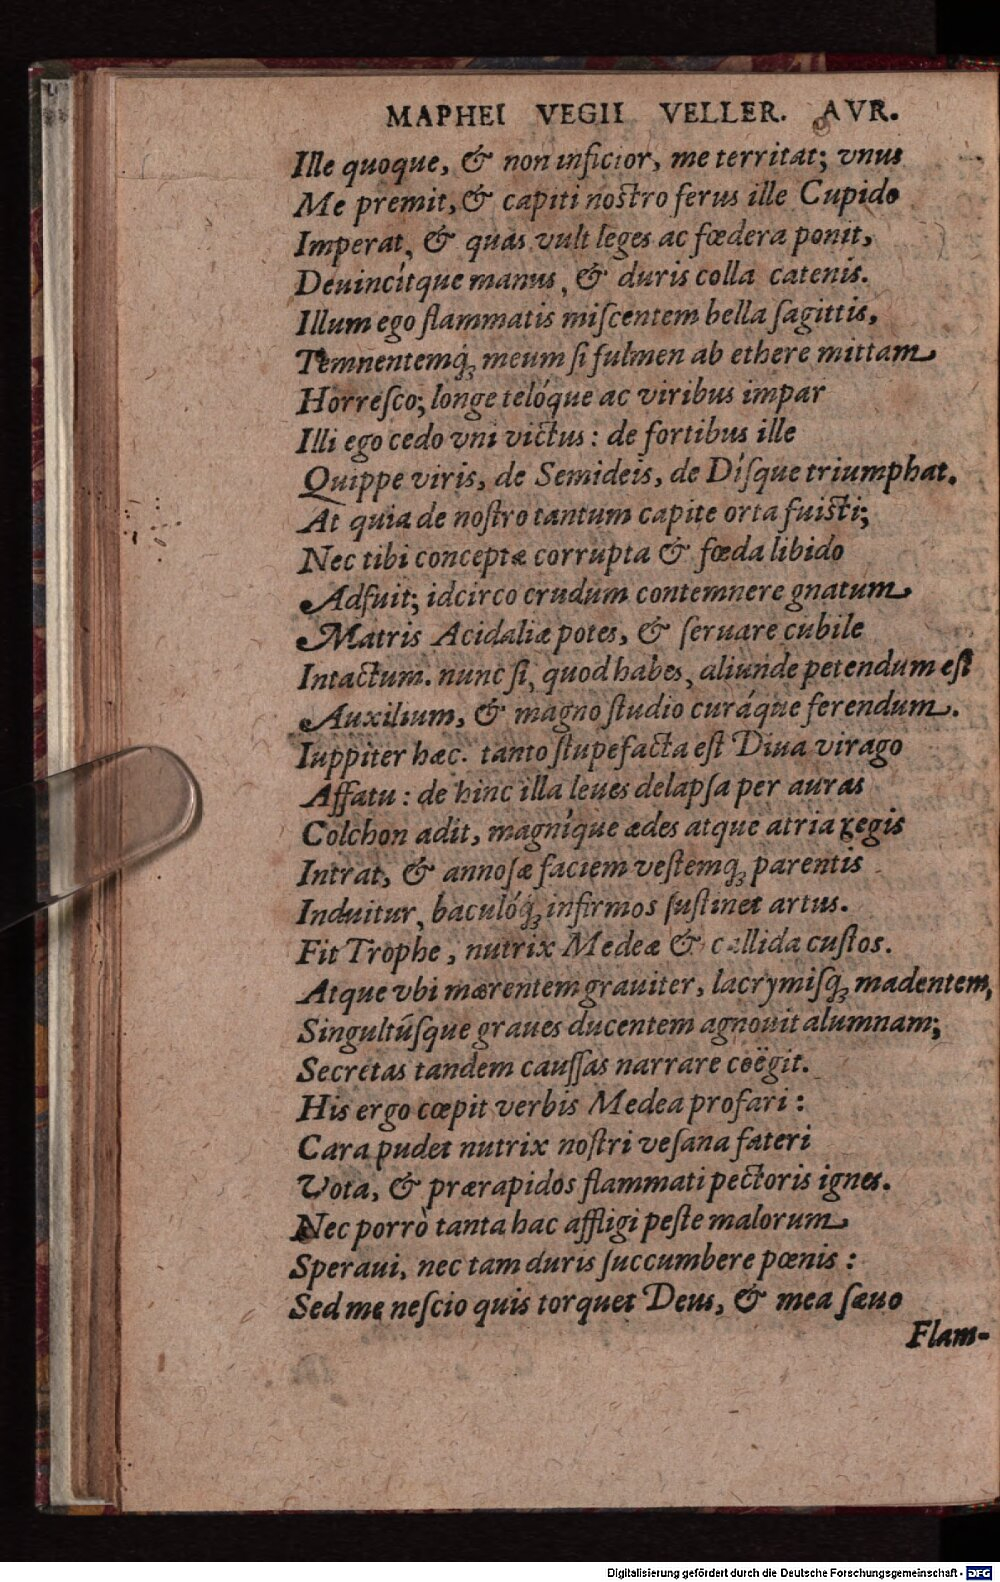 MAPHEI VEGII VELLER. AVR.
Ille quoque, & non inficior, me territat; vnus
Me premit, & capiti nostro ferus ille Cupido
Imperat, & quas vult leges ac fœdera ponit,
Deuincítque manus, & duris colla catenis.
Illum ego flammatis miſcentem bella ſagittis,
Temnentemq́ꝫ meum ſi fulmen ab ethere mittam
Horreſco; longe telóque ac viribus impar
Illi ego cedo vni victus: de fortibus ille
Quippe viris, de Semideis, de Díſque triumphat.
At quia de noſtro tantum capite orta fuisti;
Nec tibi conceptæ corrupta & fœda libido
Adfuit; idcirco crudum contemnere gnatum
Matris Acidaliæ potes, & ſeruare cubile
Intactum. nunc ſi, quod habes, aliunde petendum eſt
Auxilium, & magno ſtudio curáque ferendum.
Iuppiter hæc. tanto ſtupefacta eſt Diua virago
Affatu: de hinc illa leues delapſa per auras
Colchon adit, magníque ædes atque atria regis
Intrat, & annoſæ faciem veſtemq́ꝫ parentis
Induitur, baculóq́ꝫ infirmos ſuſtinet artus.
Fit Trophe, nutrix Medeæ & callida cuſtos.
Atque vbi mærentem grauiter, lacrymiſq́ꝫ madentem,
Singultúſque graues ducentem agnouit alumnam;
Secretas tandem cauſſas narrare coëgit.
His ergo cœpit verbis Medea profari:
Cara pudet nutrix noſtri veſana fateri
Vota, & prærapidos flammati pectoris ignes.
Nec porrò tanta hac affligi peſte malorum
Speraui, nec tam duris ſuccumbere pœnis:
Sed me neſcio quis torquet Deus, & mea ſæuo
Flam-
Digitalisierung gefördert durch die Deutsche Forschungsgemeinschaft - DFG